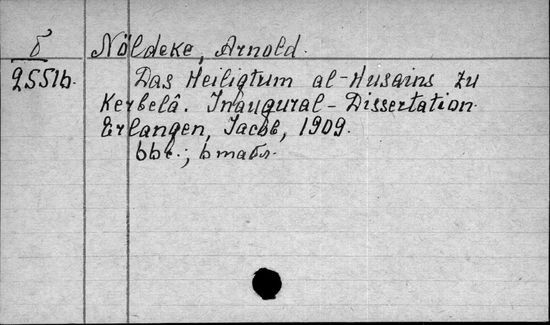 δ Nöldeke, Arnold.
2551b. Das Heiligtum al-Husains zu
Kerbelâ. Inaugural-Dissertation.
Erlangen, Jacob, 1909.
табл.